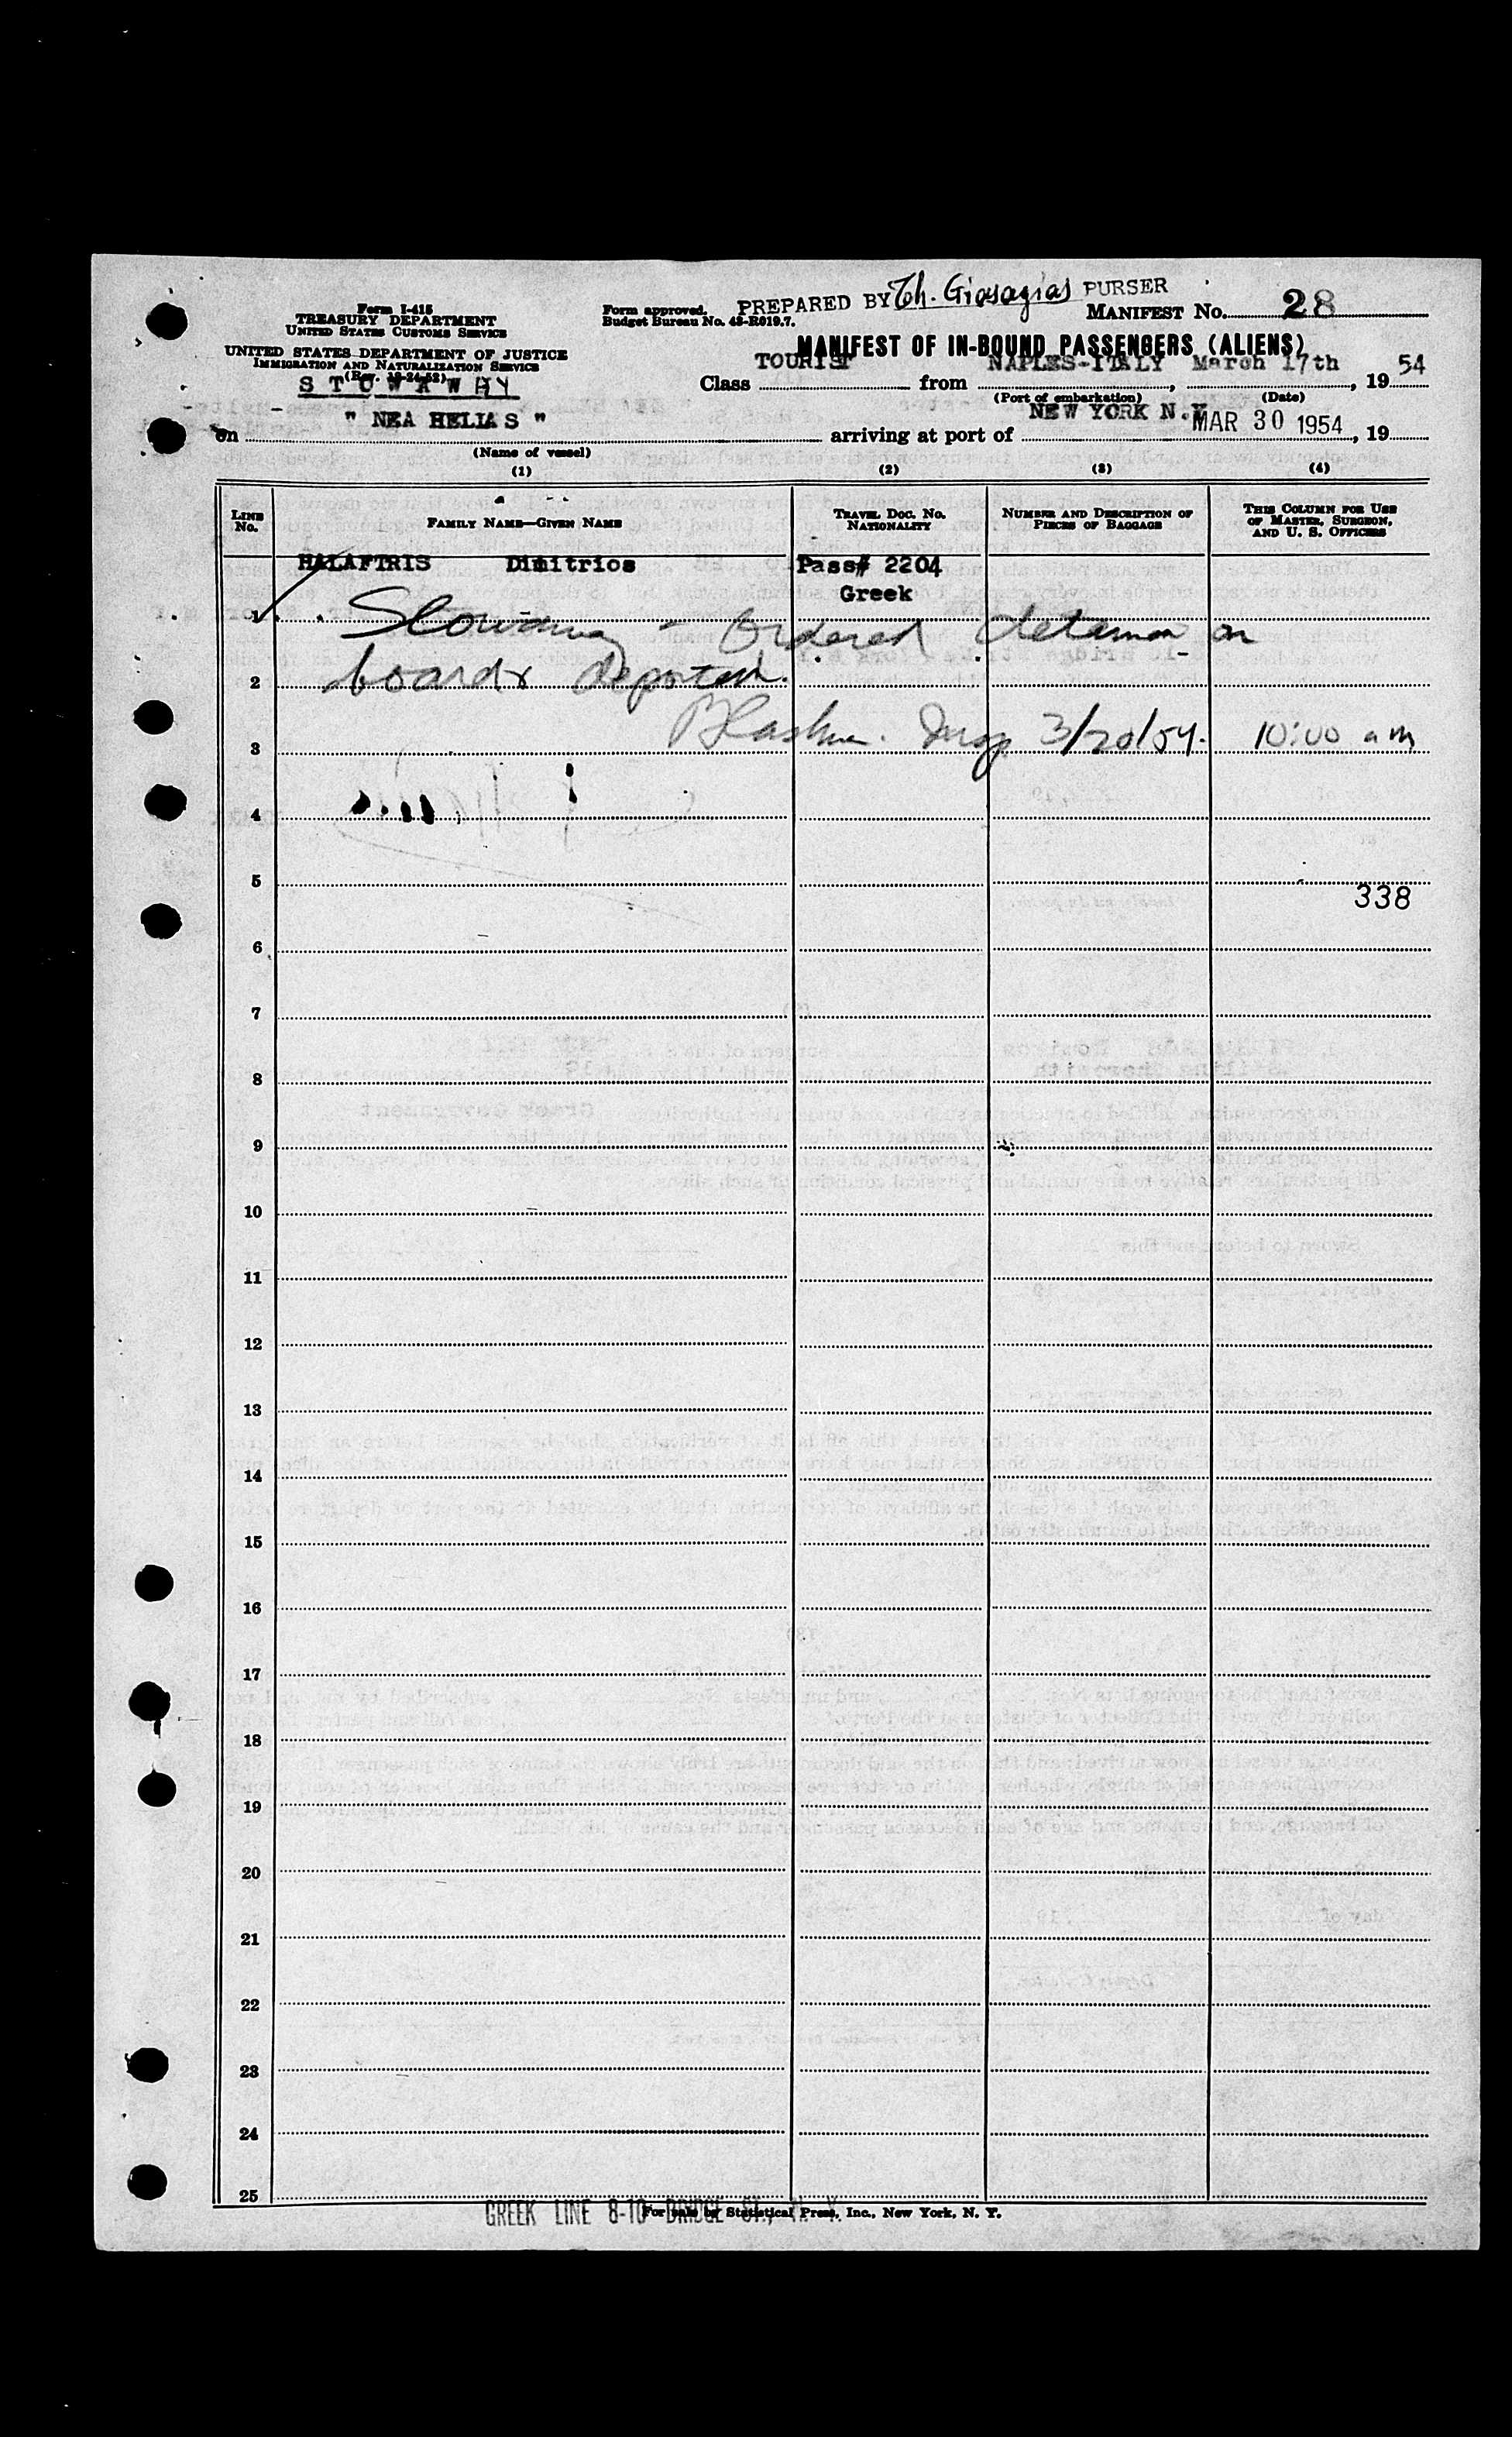 PREPARED BY Th. Giasagias PURSER
Form I-415
TREASURY DEPARTMENT
UNITED STATES CUSTOMS SERVICE
Form approved.
Budget Bureau No. 43-R019.7.
MANIFEST NO. 28
UNITED STATES DEPARTMENT OF JUSTICE
IMMIGRATION AND NATURALIZATION SERVICE
MANIFEST OF IN-BOUND PASSENGERS (ALIENS)
STOWAWAY
Class TOURIST from NAPLES-ITALY, March 17th, 19 54
(Port of embarkation) (Date)
on " NEA HELLAS " arriving at port of NEW YORK N.Y. MAR 30 1954, 19
(Name of vessel)
(1) (2) (3) (4)
LINE NO.
FAMILY NAME—GIVEN NAME
TRAVEL DOC. NO. NATIONALITY
NUMBER AND DESCRIPTION OF PIECES OF BAGGAGE
THIS COLUMN FOR USE OF MASTER, SURGEON, AND U. S. OFFICERS
HALAFTRIS Dimitrios Pass# 2204
Greek
1 Stowaway - Ordered detained on
2 board & deported.
3 Insp 3/30/54. 10:00 am
4
5
338
6
7
8
9
10
11
12
13
14
15
16
17
18
19
20
21
22
23
24
25
GREEK LINE 8-10 BRIDGE ST., N. Y.
For sale by Statistical Press, Inc., New York, N. Y.